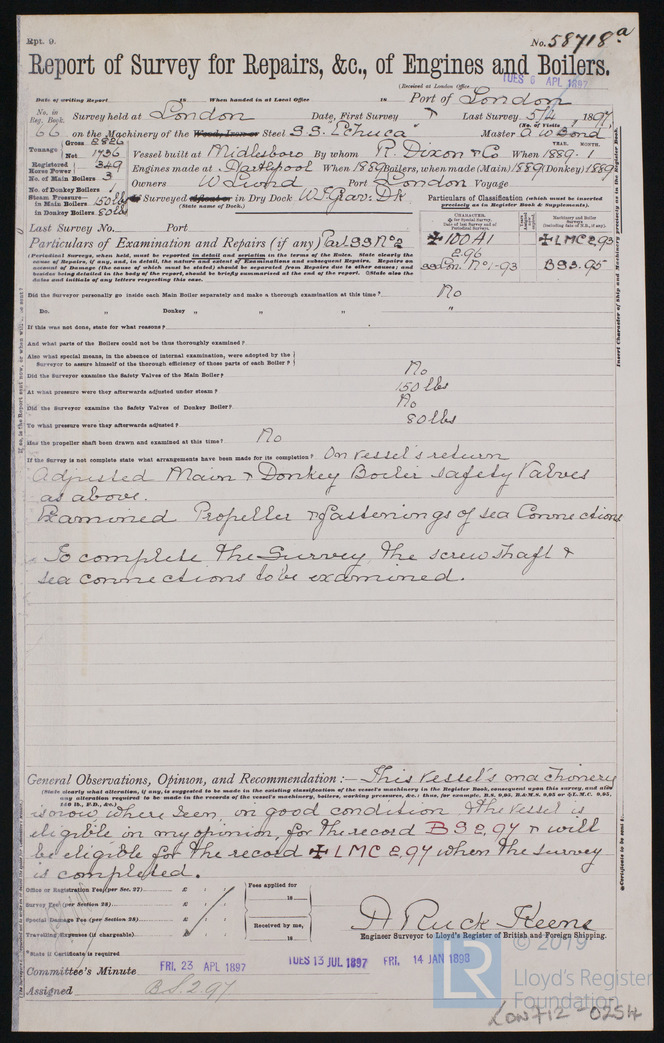 Rpt. 9.
No. 58718a
Report of Survey for Repairs, &c., of Engines and Boilers.
(Received at London Office
TUES 6 APL 1897
Date of writing Report 18 When handed in at Local Office 18 Port of London
No. in Reg. Book. Survey held at London Date, First Survey Last Survey 5/4 1897
(No. of Visits
66 on the Machinery of the Wood, Iron or Steel S.S. Echuca Master A W Bond
Tonnage Gross 2826 Net 1736
Vessel built at Midlesboro By whom R. Dixon & Co. When 1889 . 1
YEAR. MONTH.
Registered Horse Power 349
Engines made at Hartlepool When 1889 Boilers, when made (Main) 1889 (Donkey) 1889
No. of Main Boilers 3
Owners W Lund Port London Voyage
No. of Donkey Boilers 1
Steam Pressure in Main Boilers 150 lbs
in Donkey Boilers 80 lbs
Surveyed Afloat or in Dry Dock
(State name of Dock.)
Particulars of Classification (which must be inserted precisely as in Register Book & Supplements).
Last Survey No. Port
Particulars of Examination and Repairs (if any) Part SS No 2
CHARACTER.
✠ 100 A1
2.96
SS Lon. No 1-93
Machinery and Boiler Surveys
✠ LMC 2,93
BS 3.95
(Periodical Surveys, when held, must be reported in detail and seriatim in the terms of the Rules. State clearly the
cause of Repairs, if any, and, in detail, the nature and extent of Examinations and subsequent Repairs. Repairs on
account of Damage (the cause of which must be stated) should be separated from Repairs due to other causes; and
besides being detailed in the body of the report, should be briefly summarised at the end of the report. State also the
dates and initials of any letters respecting this case.
Did the Surveyor personally go inside each Main Boiler separately and make a thorough examination at this time? No
Do. " Donkey " " " "
If this was not done, state for what reasons?
And what parts of the Boilers could not be thus thoroughly examined?
Also what special means, in the absence of internal examination, were adopted by the
Surveyor to assure himself of the thorough efficiency of those parts of each Boiler?
Did the Surveyor examine the Safety Valves of the Main Boiler? No
At what pressure were they afterwards adjusted under steam? 150 lbs
Did the Surveyor examine the Safety Valves of Donkey Boiler? No
To what pressure were they afterwards adjusted? 80 lbs
Has the propeller shaft been drawn and examined at this time? No
If the Survey is not complete state what arrangements have been made for its completion? On vessel's return
Adjusted Main & Donkey Boiler safety valves
as above.
Examined Propeller & fastenings of sea Connections
To complete the Survey the screw shaft &
sea connections to be examined.
General Observations, Opinion, and Recommendation :— This vessel's machinery
(State clearly what alteration, if any, is suggested to be made in the existing classification of the vessel's machinery in the Register Book, consequent upon this survey, and also
any alteration required to be made in the records of the vessel's machinery, boilers, working pressures, &c.: thus, for example, B.S. 9,95, B.&M.S. 9,95 or ✠L.M.C. 9,95,
150 lb., F.D., &c.)
is now where seen, in good condition & the vessel is
eligible in my opinion, for the record BS 2,97 & will
be eligible for the record ✠ LMC 2,97 when the survey
is completed.
Office or Registration Fee (per Sec. 27) £ : :
Survey Fee (per Section 28) £ : :
Special Damage Fee (per Section 28) £ : :
Travelling Expenses (if chargeable) £ : :
Fees applied for
18
Received by me,
18
A Ruck Keene
Engineer Surveyor to Lloyd's Register of British and Foreign Shipping.
State if Certificate is required
Committee's Minute FRI. 23 APL 1897 TUES 13 JUL 1897 FRI. 14 JAN 1898
Assigned BS 2.97
Insert Character of Ship and Machinery precisely as in the Register Book.
Certificate to be sent to
LR
© 2019
Lloyd's Register
Foundation
LON712-0254